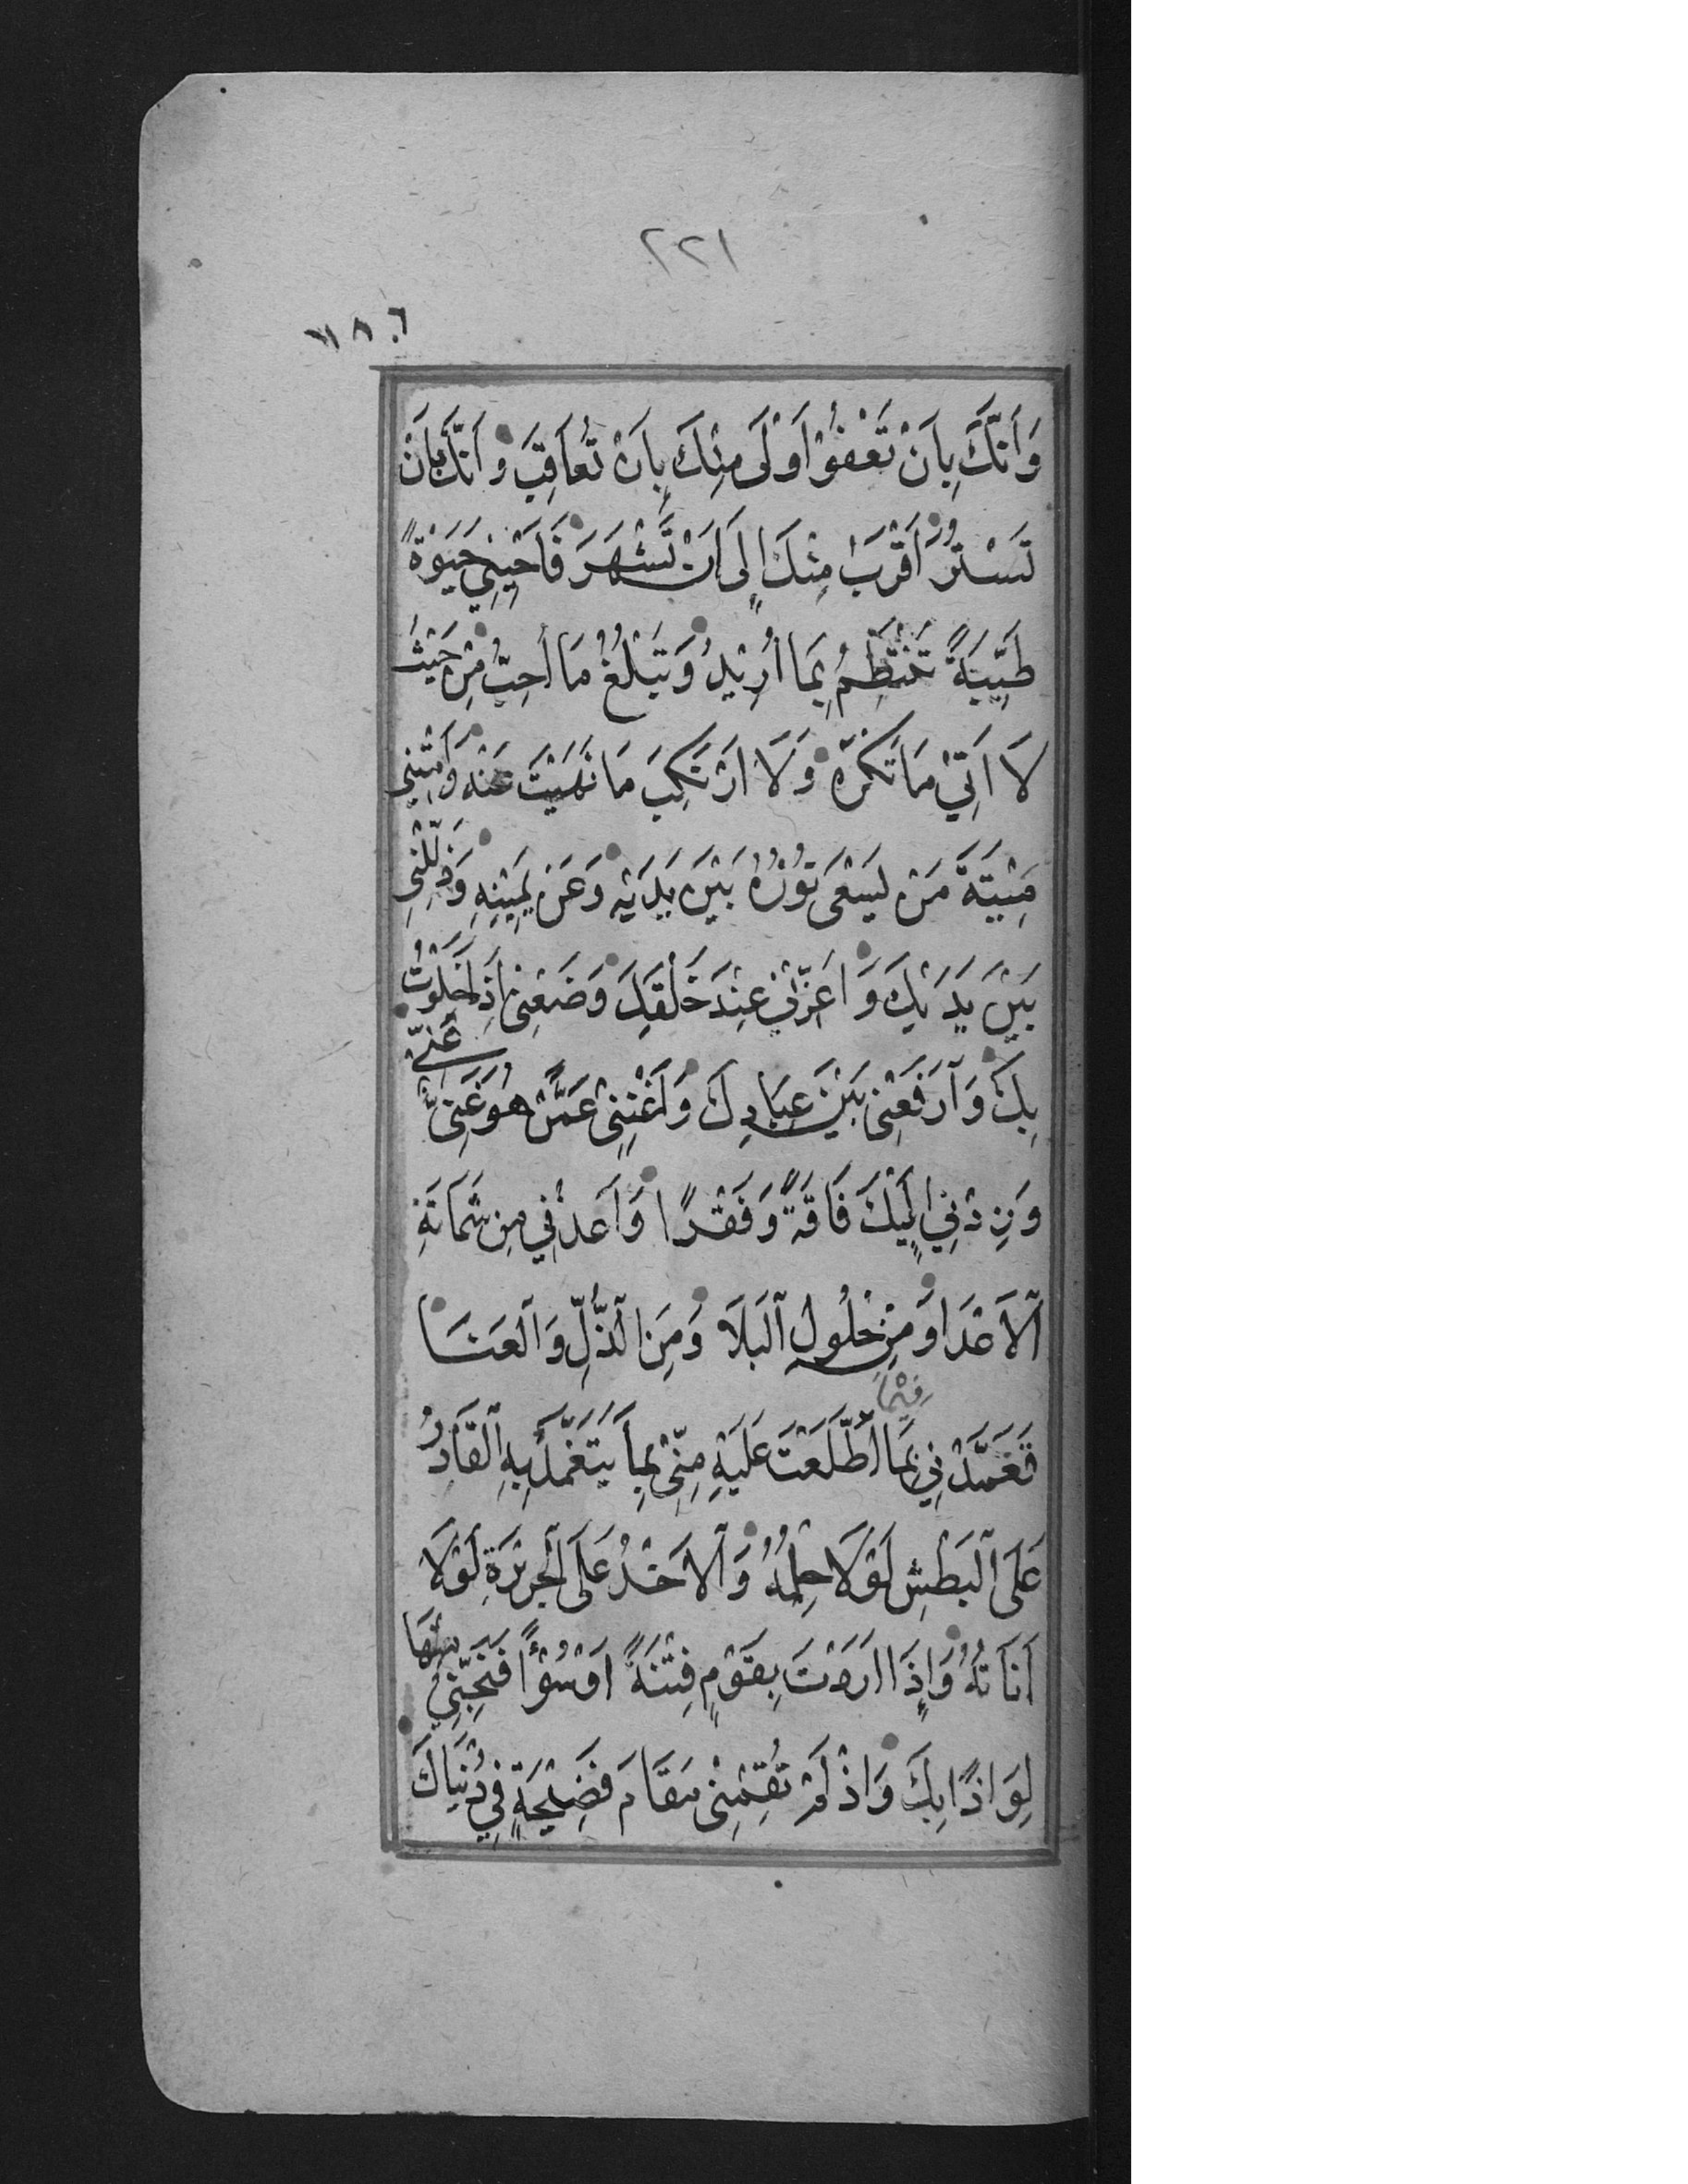 ٢٢١
٧٨٦
وَاَنَّكَ بِاَنْ تَعْفُوْ اَوْلٰى مِنْكَ بِاَنْ تُعَاقِبَ وَاَنَّكَ بِاَنْ
تَسْتُرُ اَقْرَبَ مِنْكَ اِلٰى اَنْ تَشْهَرَ فَاَحْيِنِيْ حَيٰوةً
طَيِّبَةً تَنْتَظِمُ بِمَا اُرِيْدُ وَتَبْلُغُ مَا اُحِبُّ مِنْ حَيْثُ
لَا اٰتِيْ مَا تَكْرَهُ وَلَا اَرْتَكِبَ مَا نَهَيْتَ عَنْهُ وَاَمِتْنِيْ
مِيْتَةَ مَنْ يَسْعٰى نُوْرُهُ بَيْنَ يَدَيْهِ وَعَنْ يَمِيْنِهِ وَذَلِّلْنِيْ
بَيْنَ يَدَيْكَ وَاَعِزَّنِيْ عِنْدَ خَلْقِكَ وَضَعْنِيْ اِذَا خَلَوْتُ
بِكَ وَارْفَعْنِيْ بَيْنَ عِبَادِكَ وَاَغْنِنِيْ عَمَّنْ هُوَ غَنِيٌّ عَنِّيْ
وَزِدْنِيْ اِلَيْكَ فَاقَةً وَفَقْرًا وَاَعِذْنِيْ مِنْ شَمَاتَةِ
الْاَعْدَا وَمِنْ حُلُولِ الْبَلَا وَمِنَ الذُّلِّ وَالْعَنَا
تَغَمَّدْنِيْ فِيْمَا اطَّلَعْتَ عَلَيْهِ مِنِّيْ بِمَا يَتَغَمَّدُ بِهِ الْقَادِرُ
عَلَى الْبَطْشِ لَوْلَا حِلْمُهُ وَالْاٰخِذُ عَلَى الْجَرِيْرَةِ لَوْلَا
اَنَاتُهُ وَاِذَا اَرَدْتَ بِقَوْمٍ فِتْنَةً اَوْ سُوْءًا فَنَجِّنِيْ مِنْهَا
لِوَاذًا بِكَ وَاِذْ لَمْ تُقِمْنِيْ مَقَامَ فَضِيْحَةٍ فِيْ دُنْيَاكَ